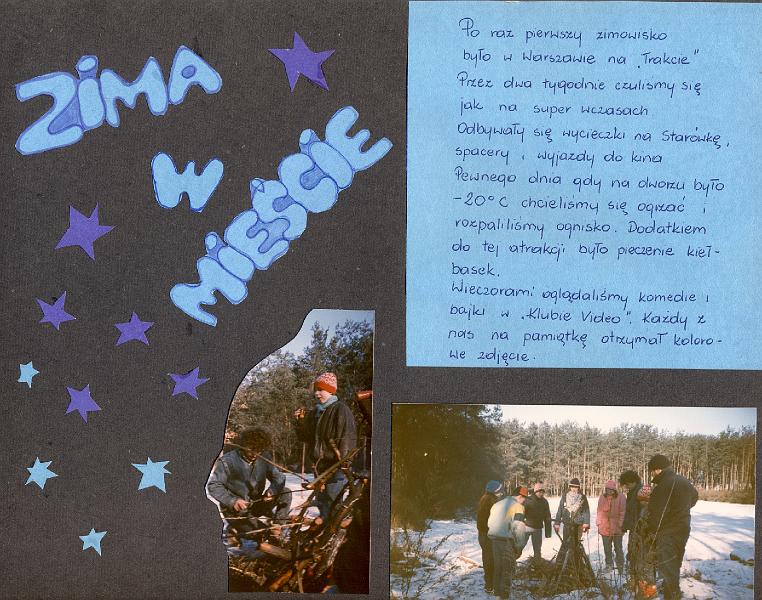 ZIMA
W
MIEŚCIE
Po raz pierwszy zimowisko
było w Warszawie na „Trakcie"
Przez dwa tygodnie czuliśmy się
jak na super wczasach
Odbywały się wycieczki na Starówkę,
spacery i wyjazdy do kina
Pewnego dnia gdy na dworzu było
-20°C chcieliśmy się ogrzać i
rozpaliliśmy ognisko. Dodatkiem
do tej atrakcji było pieczenie kieł-
basek.
Wieczorami oglądaliśmy komedie i
bajki w „Klubie Video". Każdy z
nas na pamiątkę otrzymał koloro-
we zdjęcie.